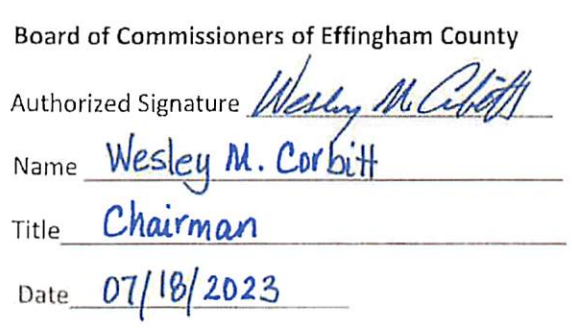 Board of Commissioners of Effingham County
Authorized Signature Wesley M. Corbitt
Name Wesley M. Corbitt
Title Chairman
Date 07/18/2023